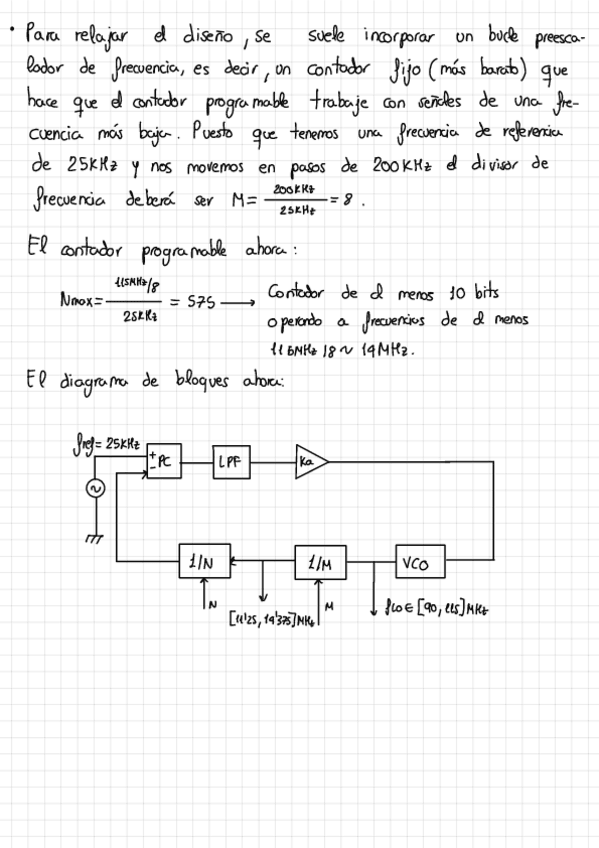 • Para relajar el diseño, se suele incorporar un bucle preesca-
lador de frecuencia, es decir, un contador fijo (más barato) que
hace que el contador programable trabaje con señales de una fre-
cuencia más baja. Puesto que tenemos una frecuencia de referencia
de 25KHz y nos movemos en pasos de 200KHz el divisor de
frecuencia deberá ser M = 200KHz / 25KHz = 8.
El contador programable ahora:
Nmax = 115MHz/8 / 25KHz = 575 → Contador de al menos 10 bits
operando a frecuencias de al menos
115MHz/8 ~ 14MHz.
El diagrama de bloques ahora:
fref = 25KHz
+ - PC
LPF
Ka
1/N
1/M
VCO
N
[11'25, 14'375]MHz
M
fLO ∈ [90, 115]MHz